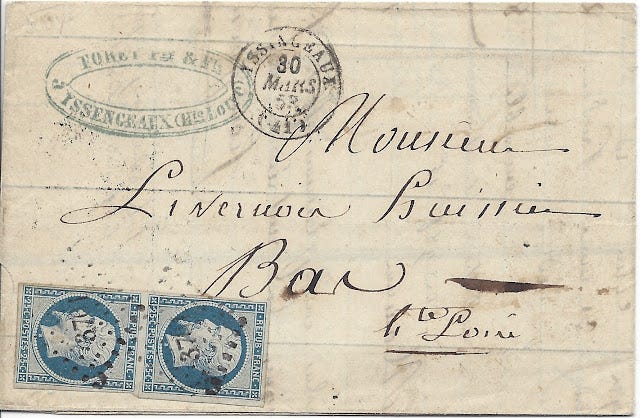 TORET Px & Fls
à YSSENGEAUX (Hte Loire)
YSSINGEAUX
30
MARS
53
(41)
Monsieur
Livernois huissier
Bas
hte Loire
REPUB. FRANC.
POSTES
REPUB. FRANC.
POSTES